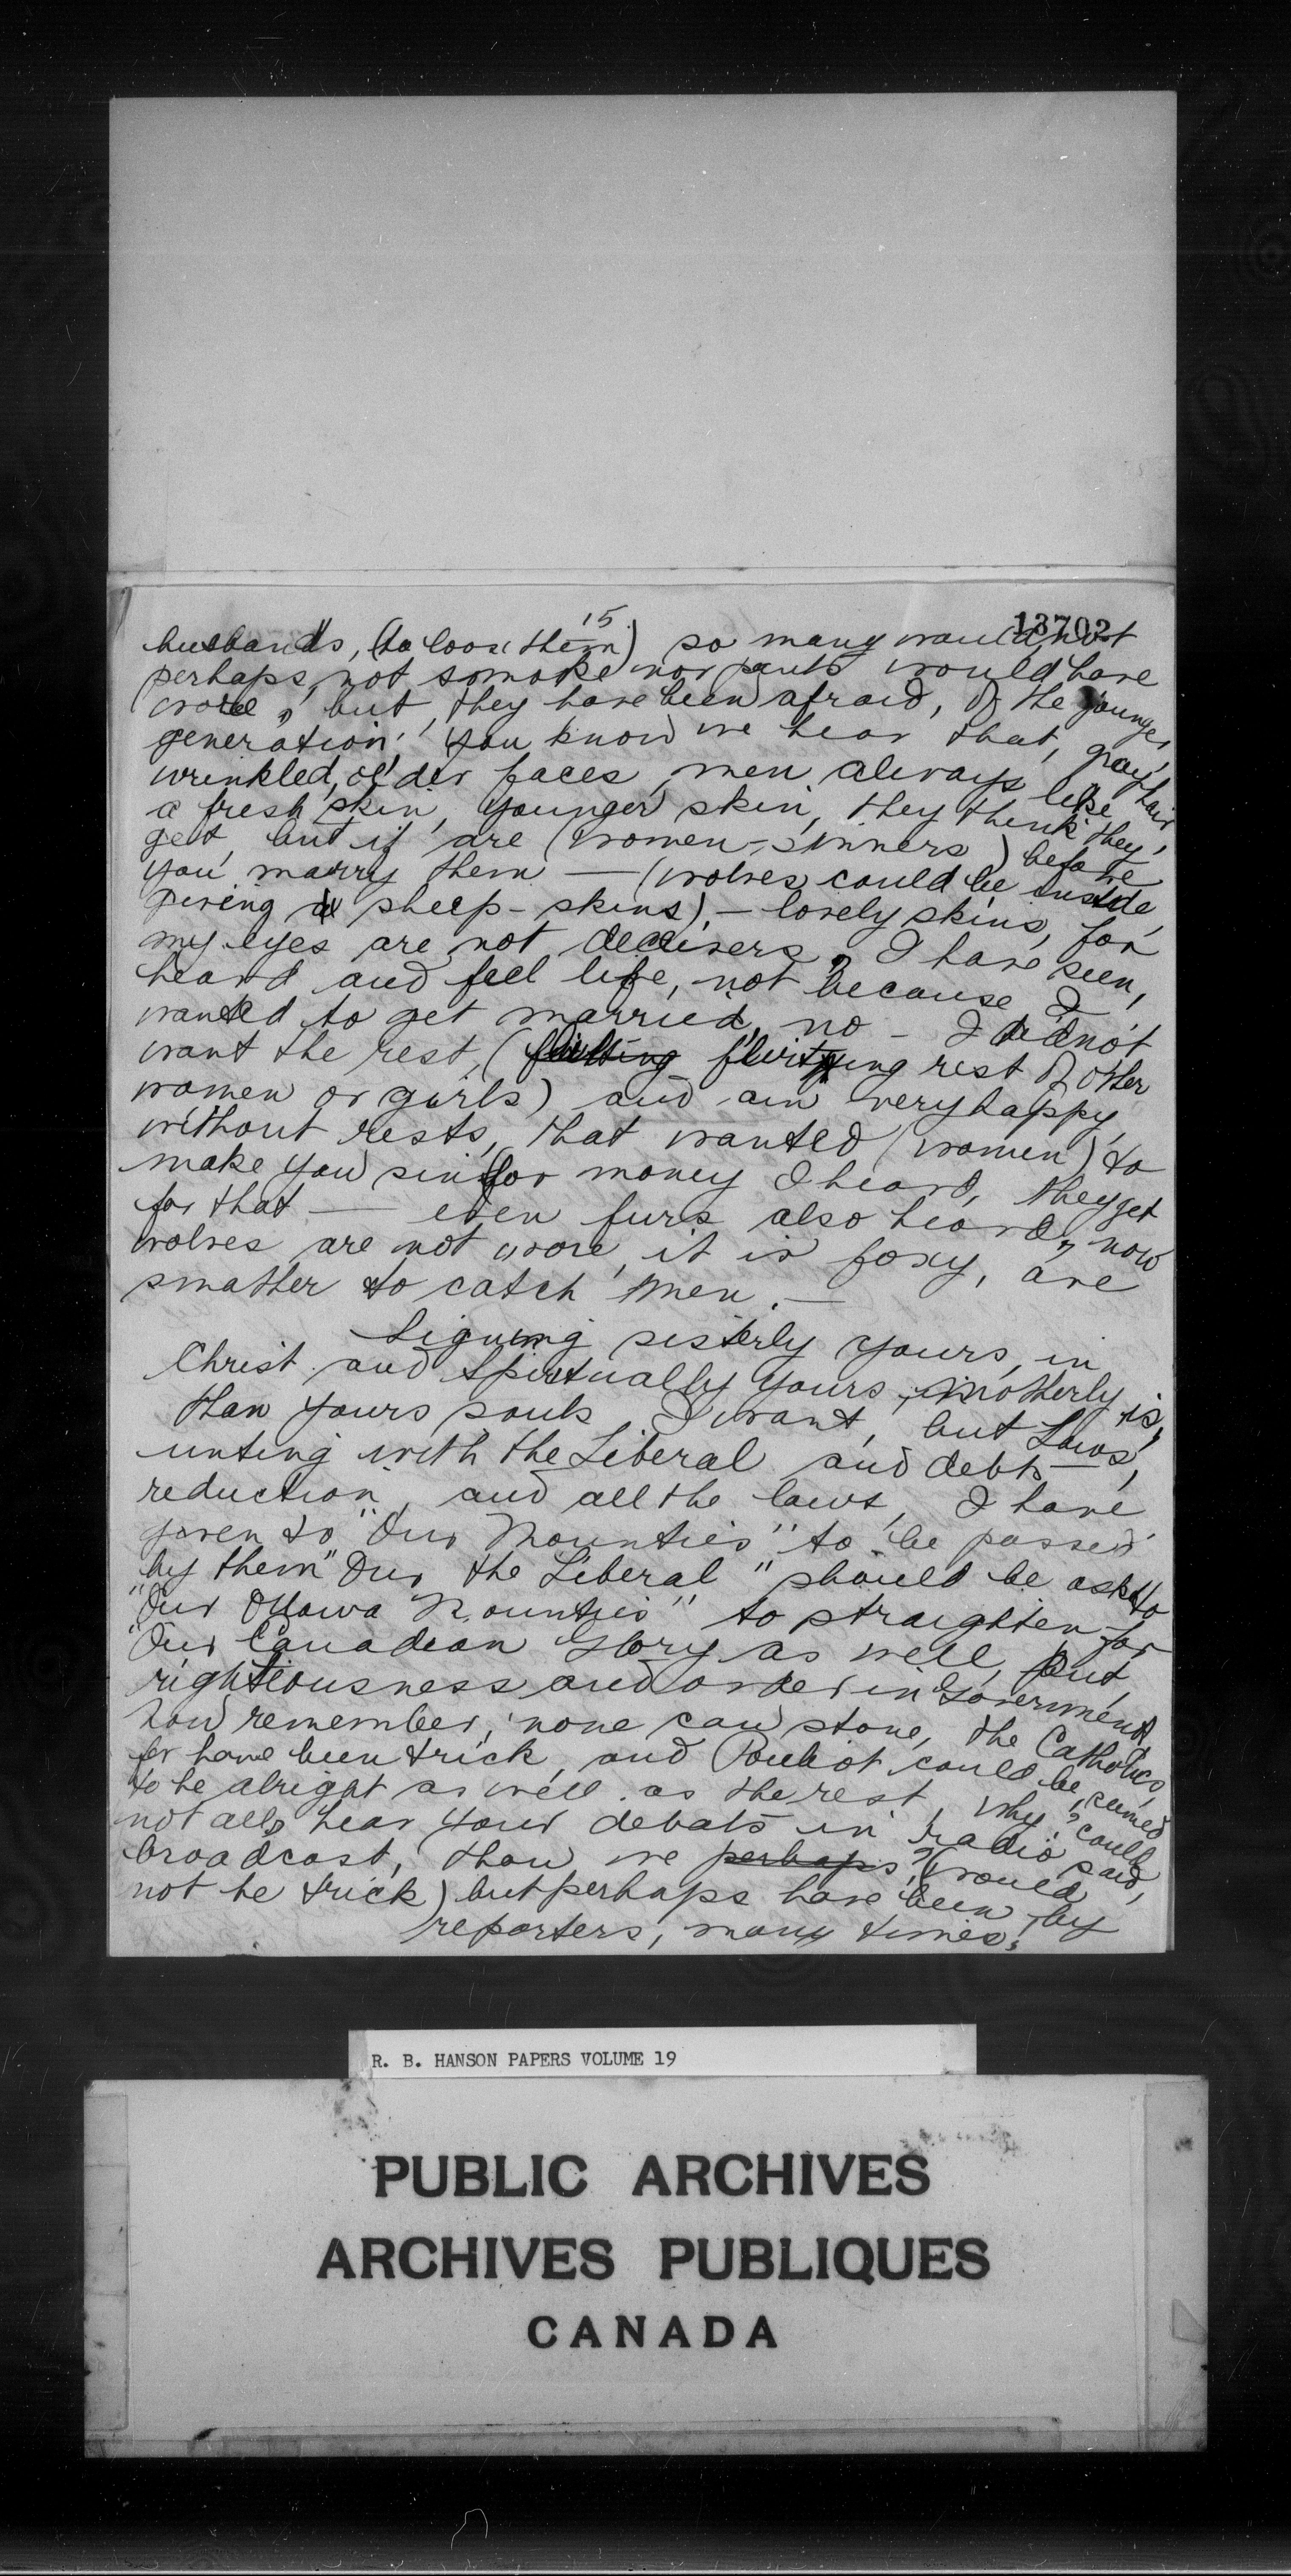 15
13702
husbands, (to loose them) so many would not
perhaps, not somoke nor pants would have
wore, but, they have been afraid, of the younger
generation, you know we hear that, gray hair
wrinkled, older faces, men always like
a fresh skin, younger skin, they think they,
get, but if are (women-sinners) before
you marry them — (wolves could be inside,
 sheep-skins), — lovely skins, for
my eyes are not deceivers, I have seen,
heard and feel life, not because I
wanted to get married, no - I did not
want the rest, ( flirting rest of other
women or girls) and am very happy,
without rests, that wanted (women) to
make you sin for money I heard, they get
for that — even furs also heard, now
wolves are not wore, it is foxy, are
smather to catch men. —
Signing sisterly yours, in
Christ and Spiritually yours, motherly is,
than yours souls I want, but Laws,
unting with the Liberal and debts —
reduction, and all the laws, I have
given to "Our Mounties" to be passed
by them "Our the Liberal" should be ask to
"Our Ottawa Mounties" to straighten for
"Our Canadian Glory as well, but
rightiousness and order in Government,
now remember, none can stone, the Catholics,
for have been trick, and Pouliot could be, seemed
to be alright as well as the rest, why? could
not all, hear your debats in radio said,
broadcast, than we perhaps, (would
not be trick) but perhaps have been by
reporters, many times.
R. B. HANSON PAPERS VOLUME 19
PUBLIC ARCHIVES
ARCHIVES PUBLIQUES
CANADA